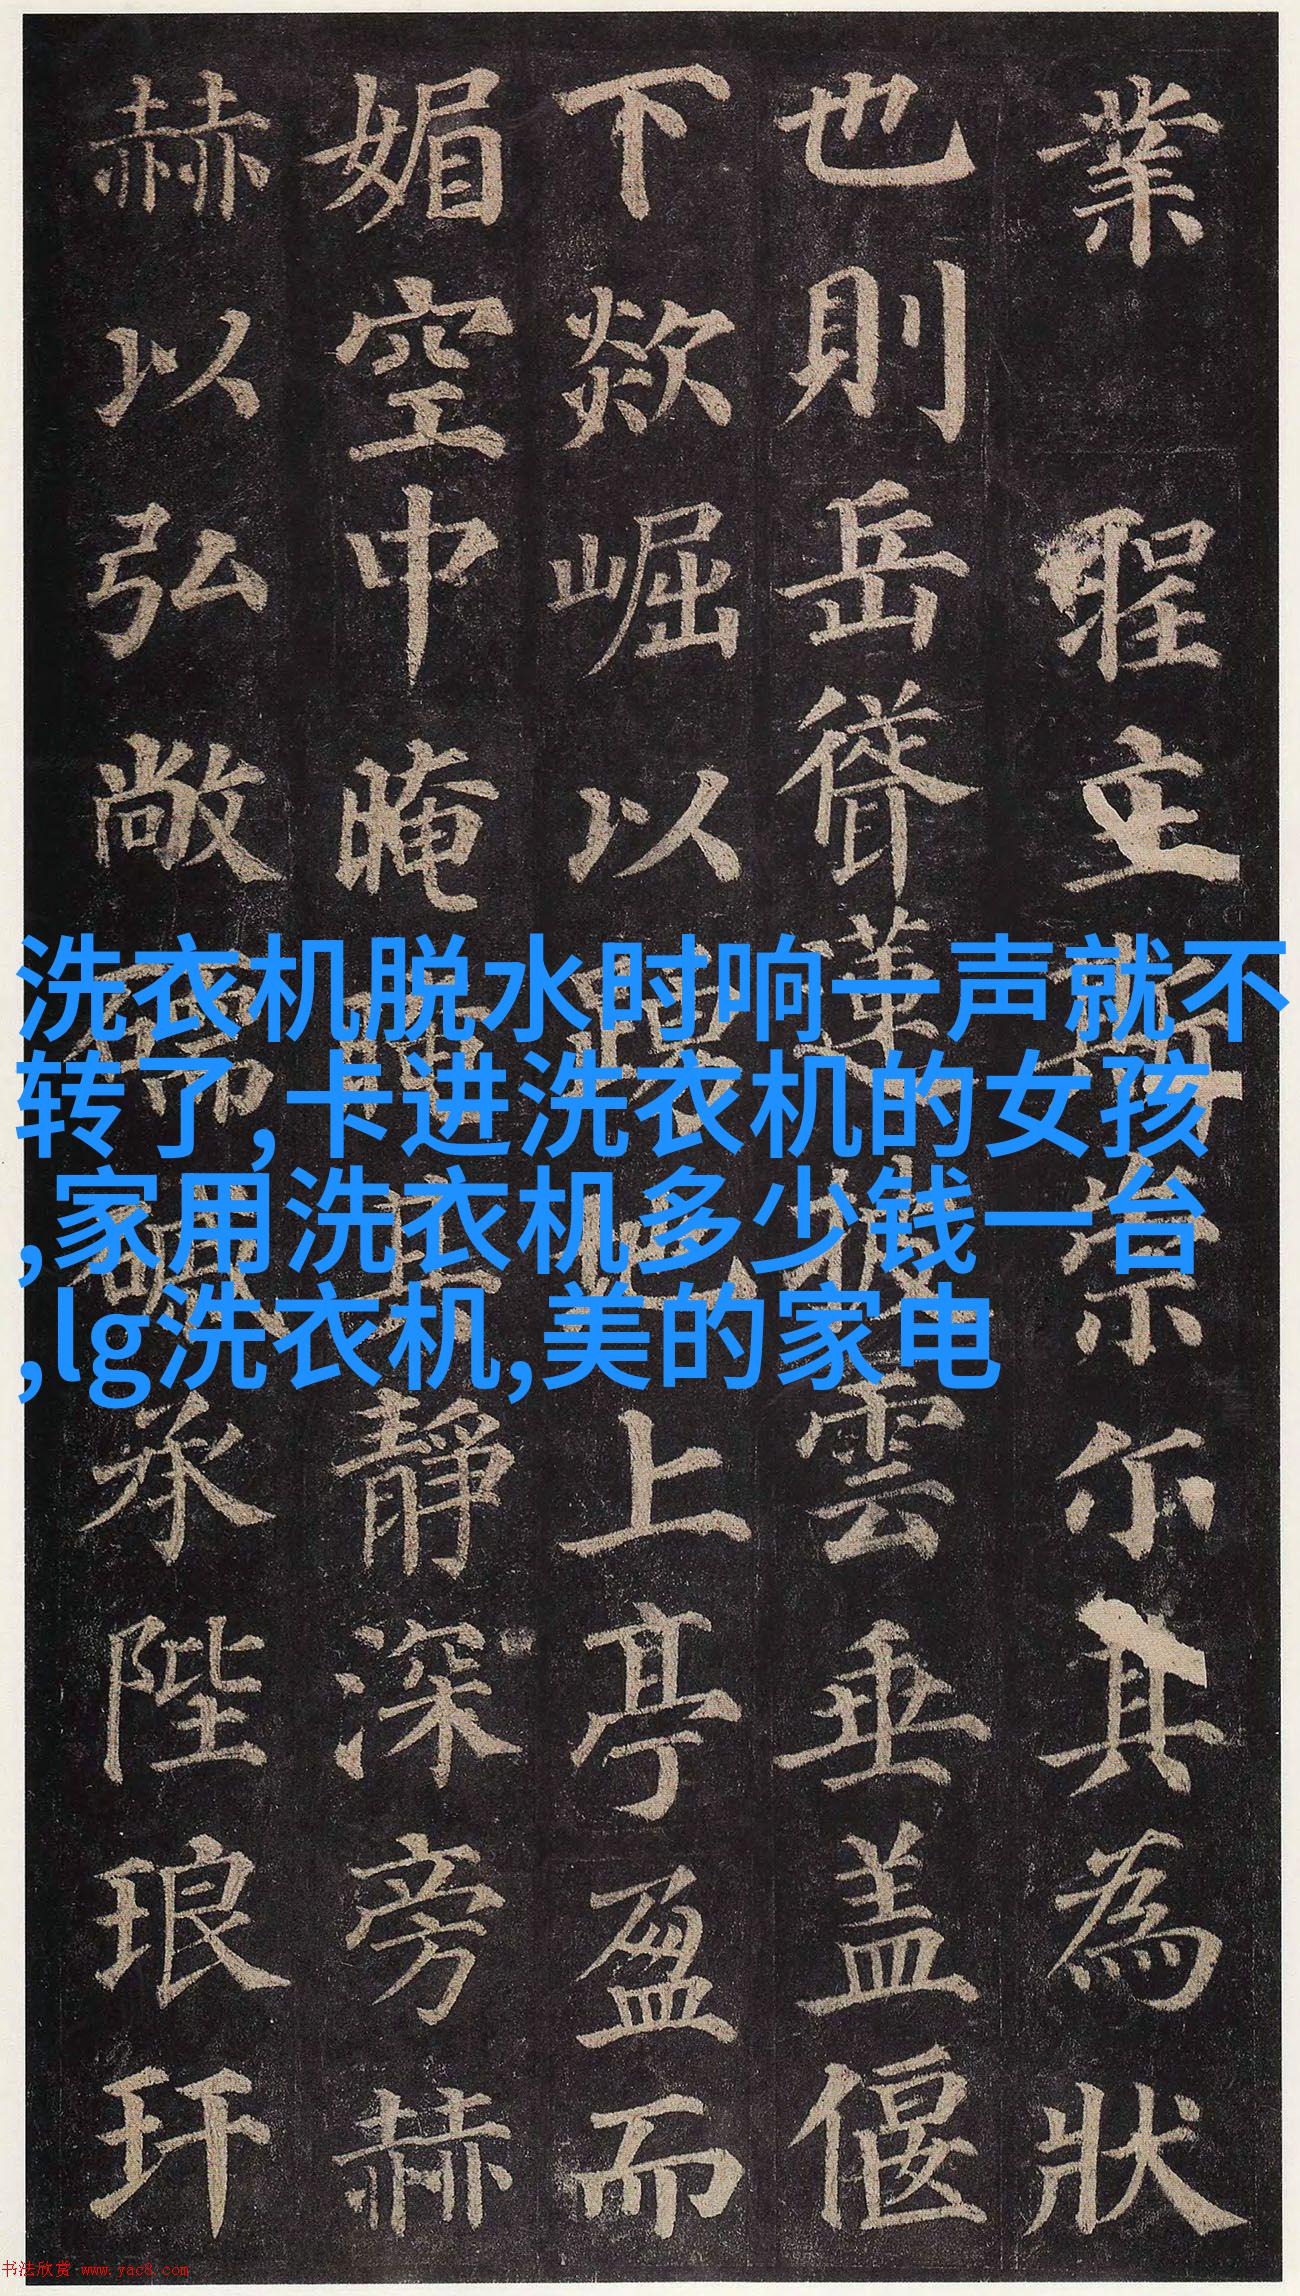 業聖立斯崇尔其為狀
也則岳聳蓮披雲垂盖偃
下欻崛以上亭盈而
媚空中晻靜深旁赫
赫以弘敞承陛琅玕
洗衣机脱水时响一声就不
转了,卡进洗衣机的女孩
,家用洗衣机多少钱一台
,lg洗衣机,美的家电
书法欣赏 www.yac8.com